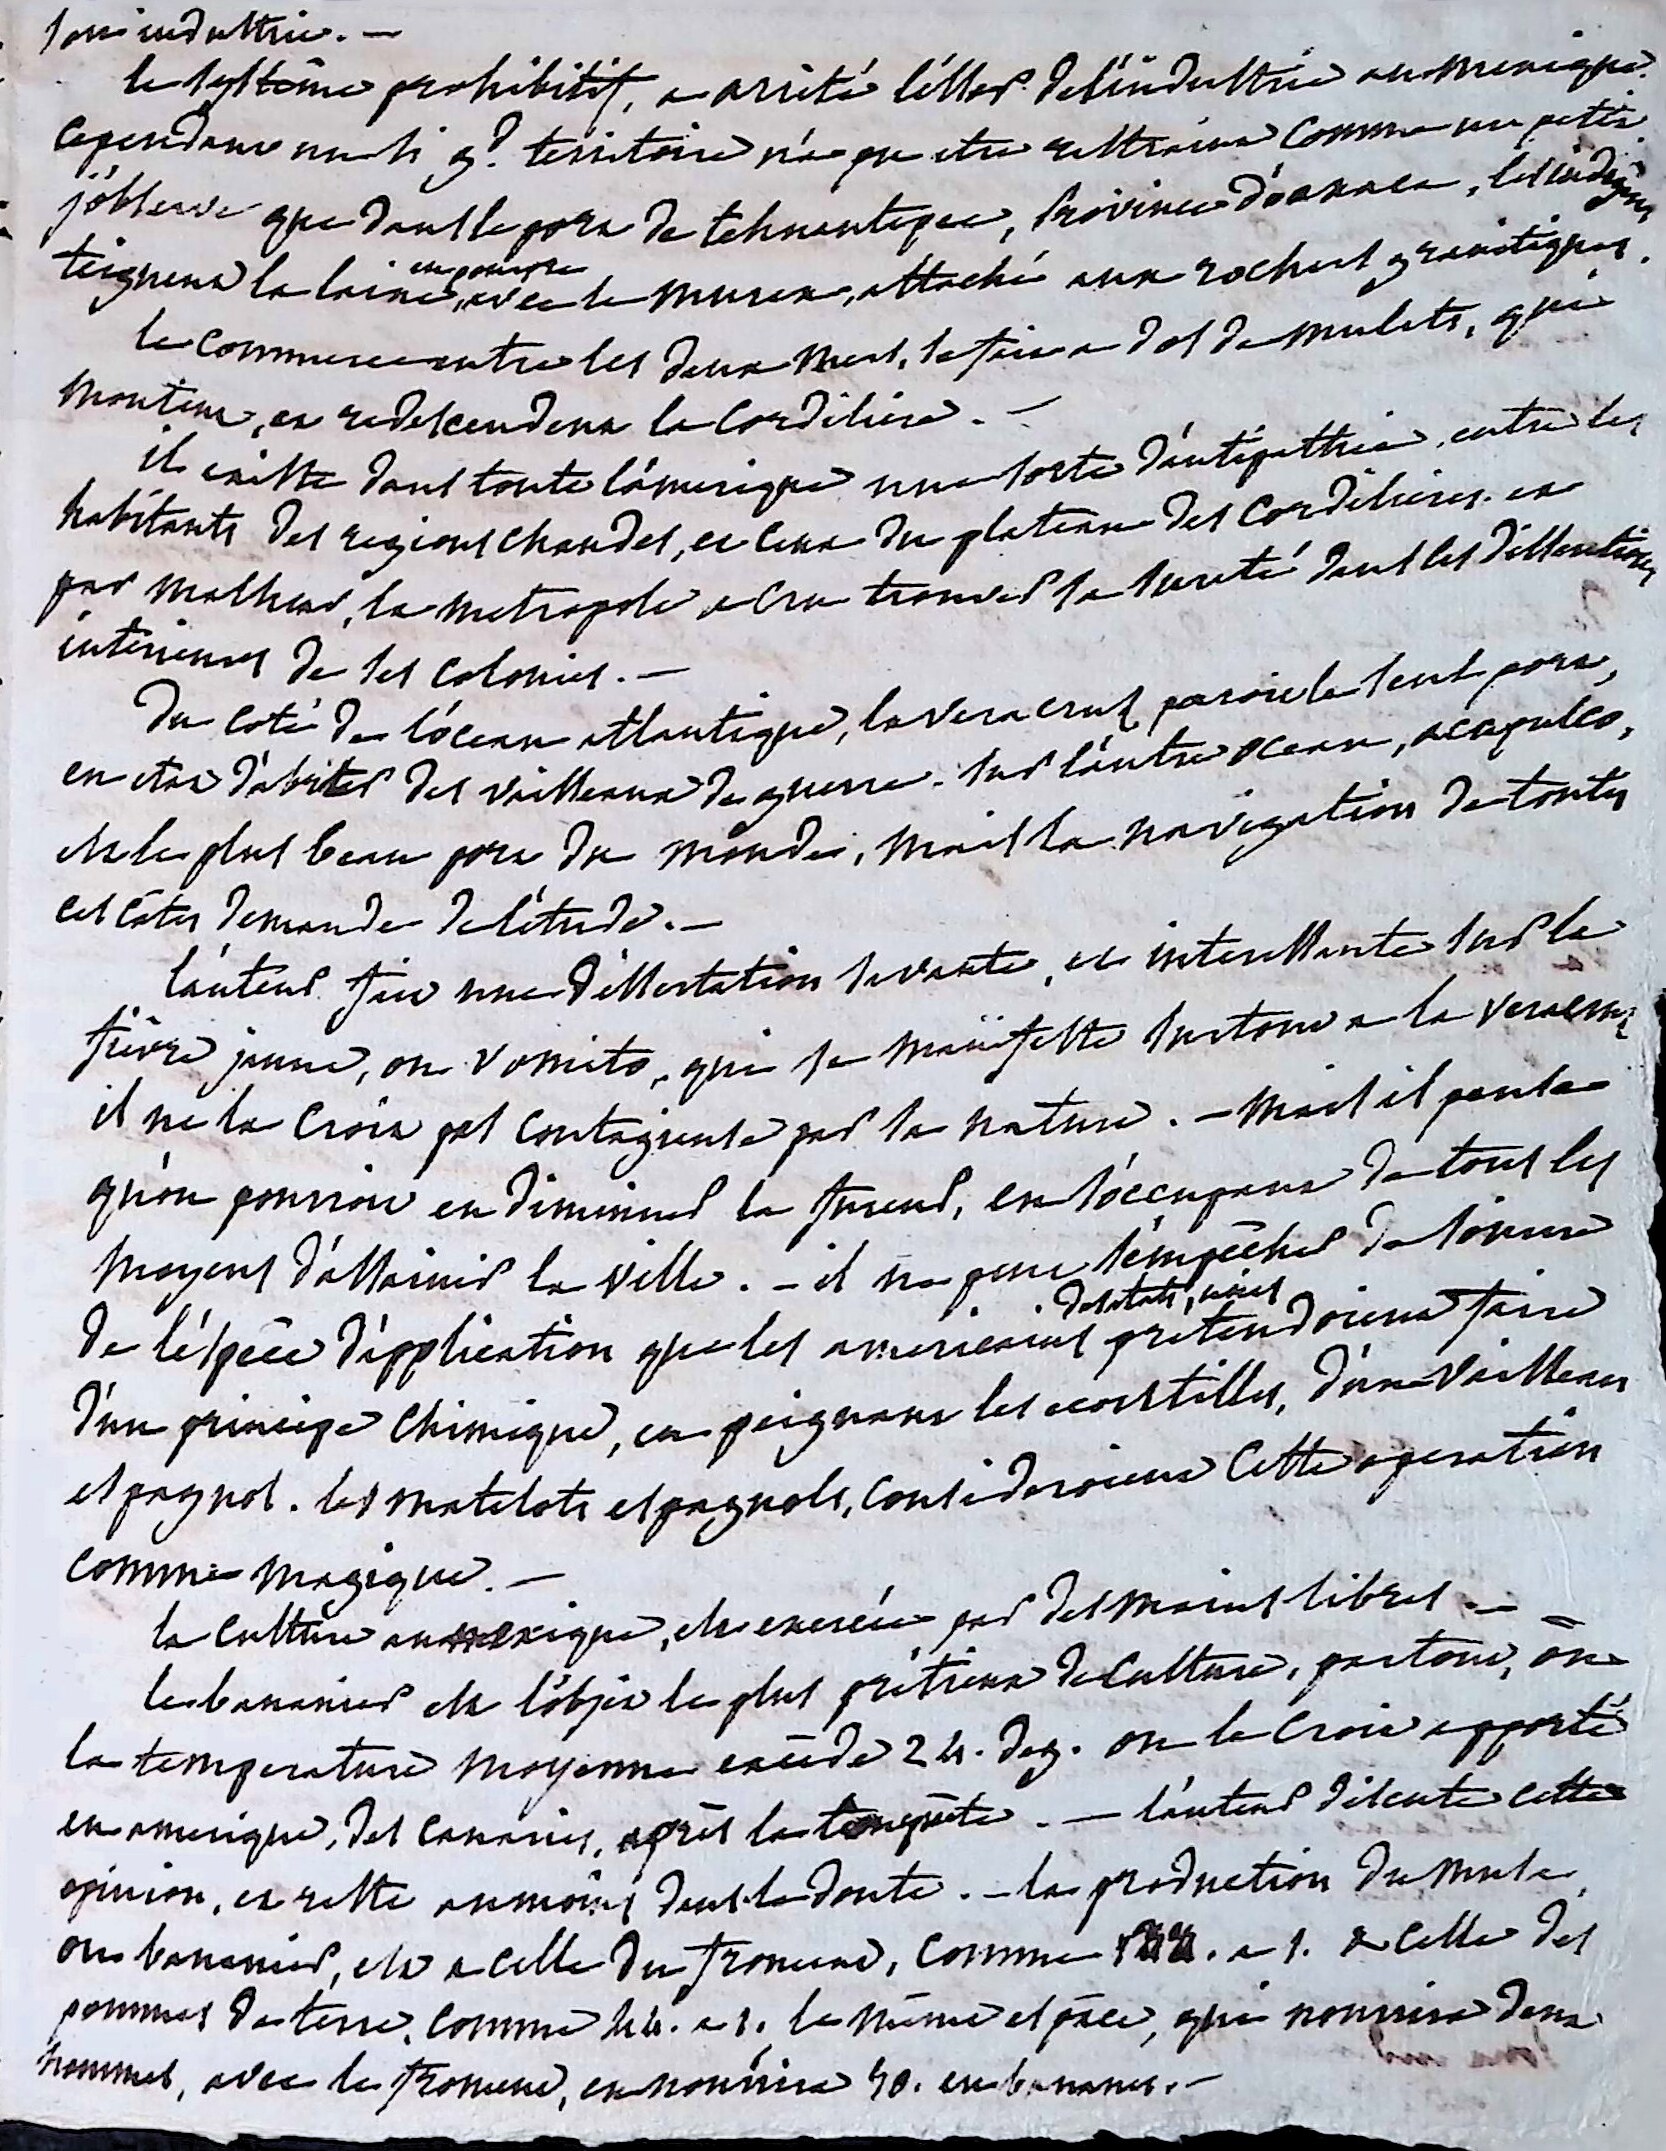 son industrie. —
le systême prohibitif, a arrité l'essor de l'industrie au mexique.
cependant un si gd. territoire n'a pu etre restraint comme un petit.
j'observe que dans le port de tehuantepec, province d'oaxaca, les indigens
teignent la laine, en pourpre avec le murex, attaché aux rochers granitiques.
le commerce entre les deux mers, se fait a dos de mulets, qui
montent, et redescendent la Cordiliere. —
il existe dans toute l'amerique une sorte d'antipathie, entre les
habitants des regions chaudes, et ceux du plateau des Cordilieres. et
par malheur, la metropole a cru trouver sa sureté dans les dissentions
interieures de ses colonies. —
Du coté de l'ócean atlantique, la vera cruz paroit le seul port,
en etat d'abriter des vaisseaux de guerre. sur l'autre ocean, acapulco,
est le plus beau port du monde, mais la navigation de toutes
ces côtes demande de l'étude. —
l'auteur fait une dissertation savante, et interessante sur la
fièvre jaune, ou vomito, qui se manifeste surtout a la veracruz
il ne la croit pas contagieuse par sa nature. — mais il pense
qu'on pourroit en diminuer la fureur, en s'occupant de tous les
moyens d'assainir la ville. — il ne peut s'empêcher de sourire
de l'éspèce d'application que les americains des etats unis pretendoient faire
d'un principe chimique, en peignant les ecoutilles, d'un vaisseau
espagnol. les matelots espagnols, consideroient cette operation
comme magique. —
la culture au mexique, est exercée par des mains libres. —
le bananier est l'objet le plus prétieux de culture, partout, ou
la temperature moyenne excède 24. deg. on le croit apporté
en amerique, des canaries, après la conquête. — l'auteur discute cette
opinion, et reste au moins dans le doute. — la production du musa,
ou bananier, est a celle du froment, comme 133. a 1. a celle des
pommes de terre, comme 44. a 1. le même espace, qui nourrit deux
hommes, avec le froment, en nourrira 50. en bananes. —